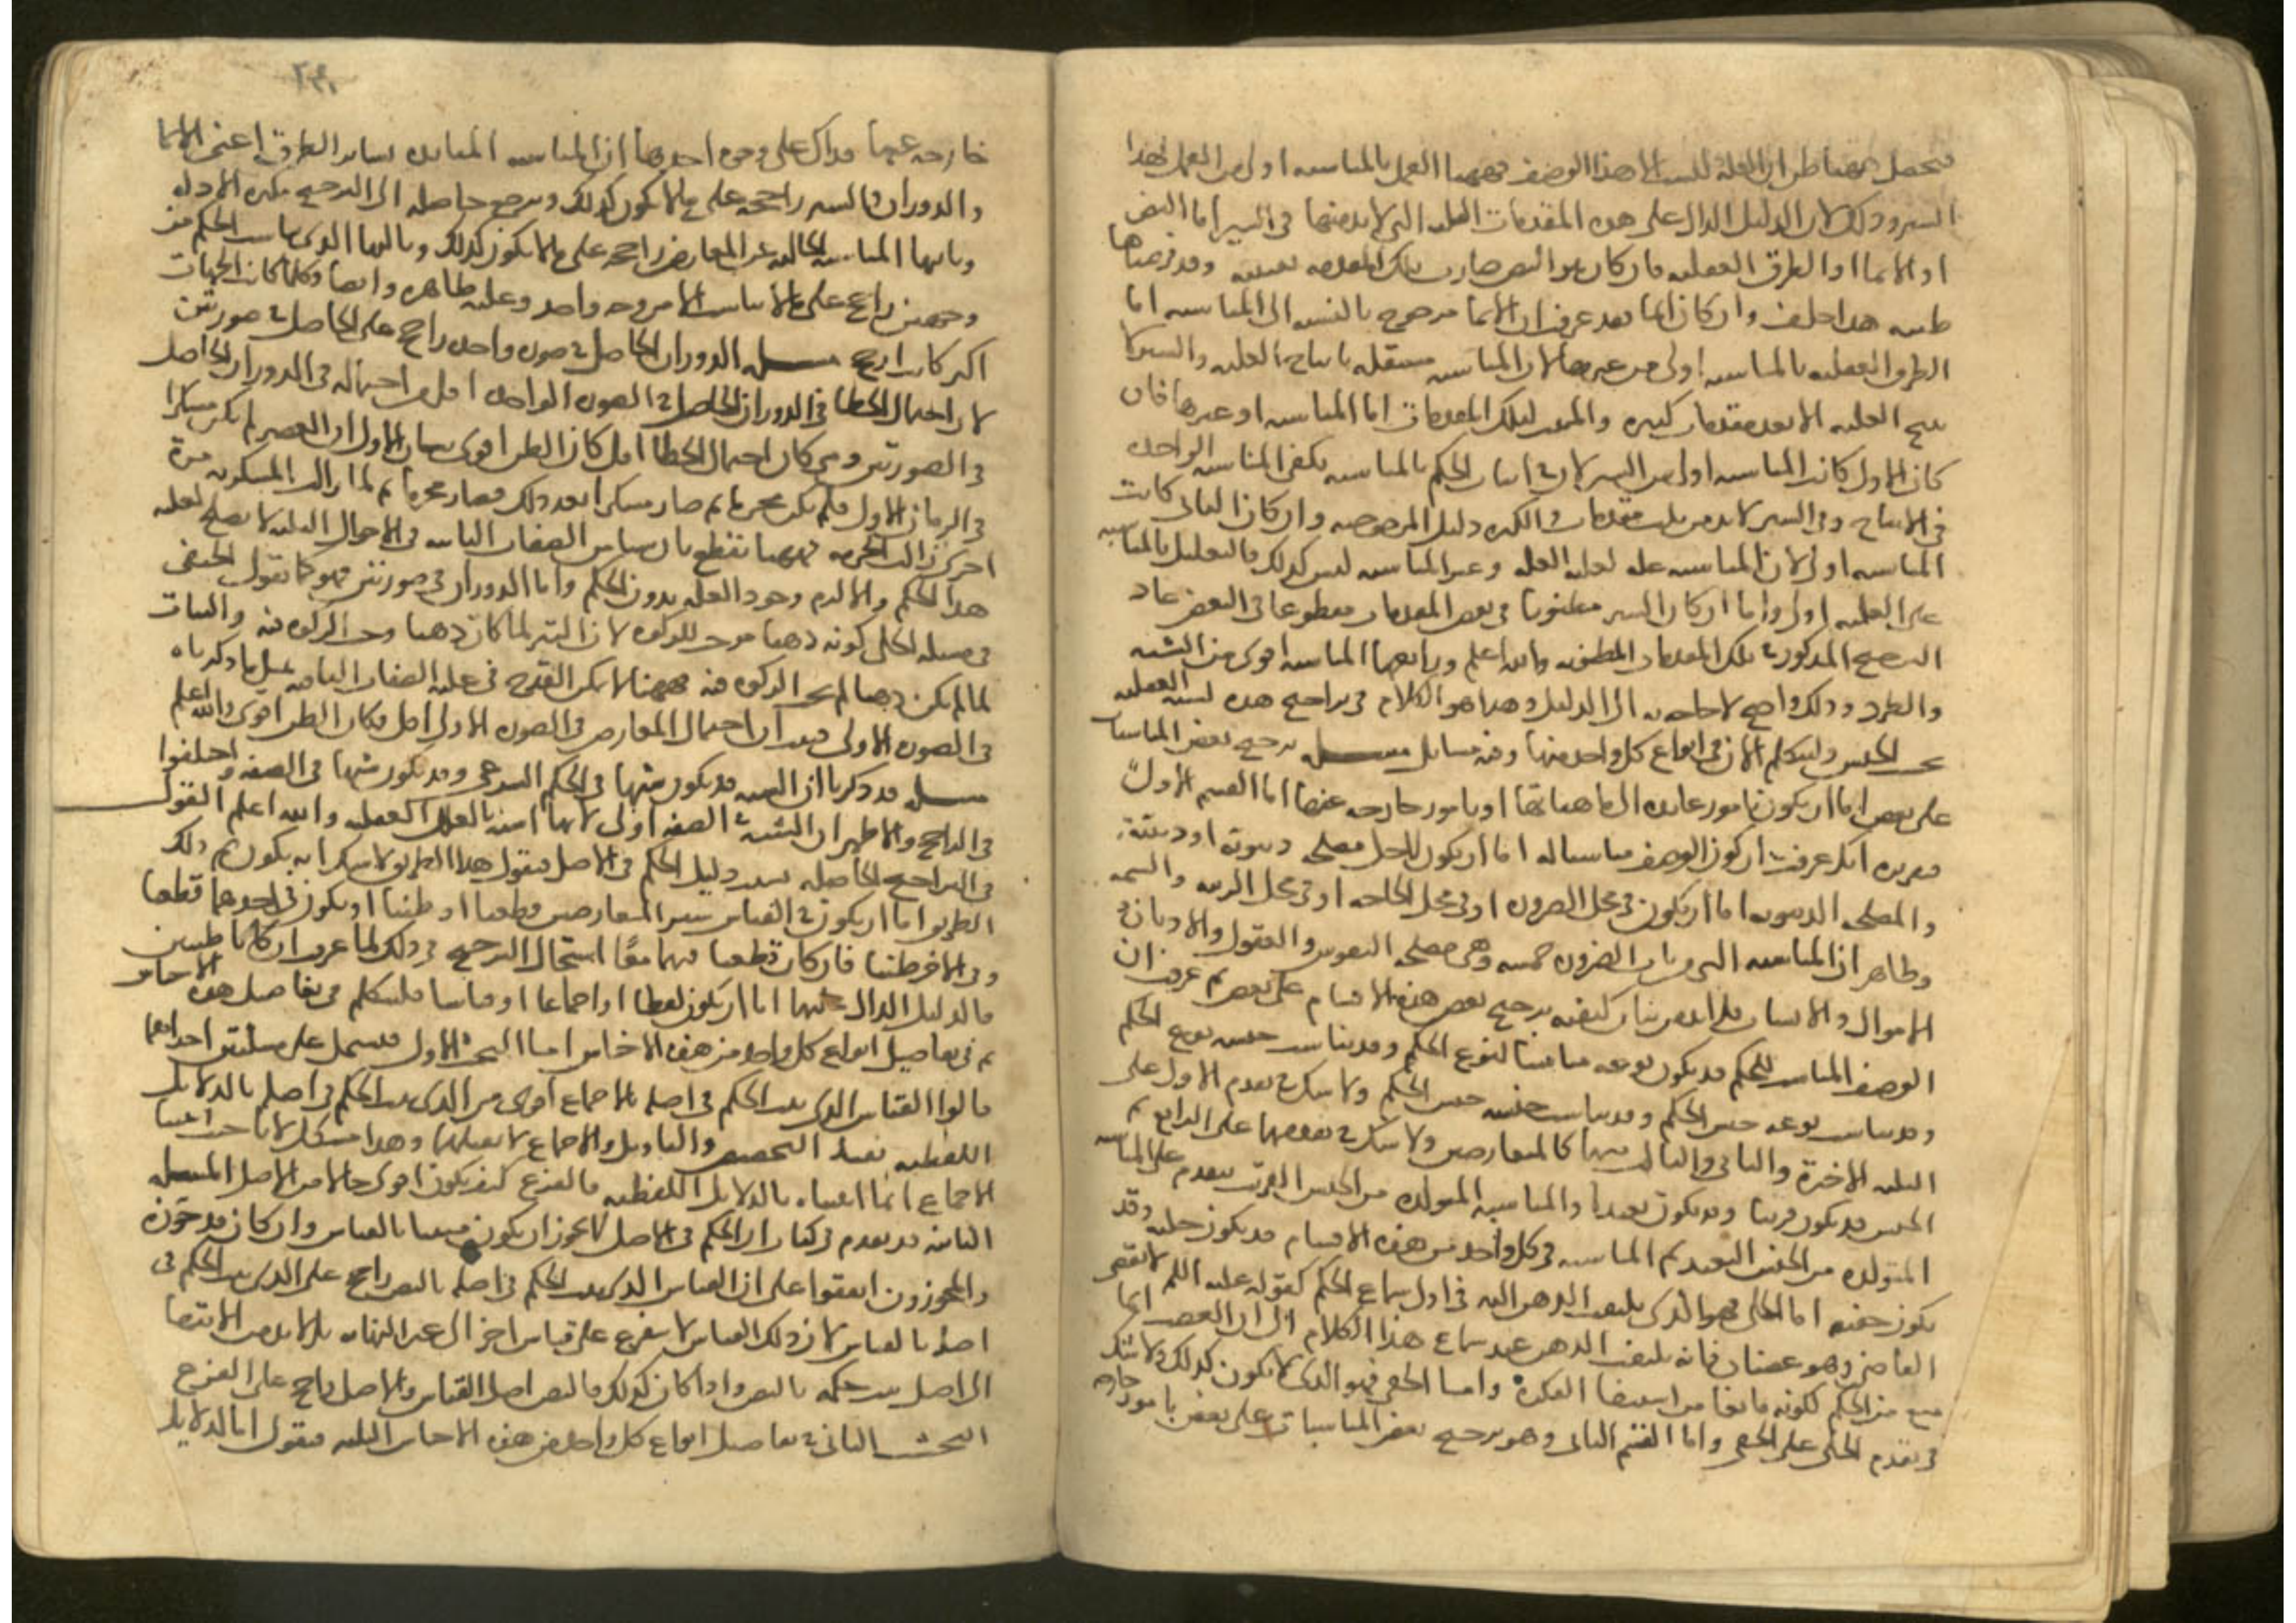 فيحصل ههنا ظن ان العلة ليست الا هذا الوصف فههنا العمل بالمناسبة اولى من العمل بهذا
السبر وذلك لان الدليل الدال على هذه المقدمات الثلث التي لا بد منها في السبر اما النص
او الايما او الطرق العقلية فان كان هو النص صارت تلك المقدمة يقينية وقد فرضناها
ظنية هذا خلف وان كان ايما فقد عرفت ان الايما مرجوح بالنسبة الى المناسبة اما
الطرق العقلية فالمناسبة اولى من غيرها لان المناسبة مستقلة بانتاج العلية والسبر لا
ينتج العلية الا بعد مقدمات كثيرة والمثبت لتلك المقدمات اما المناسبة او غيرها فان
كان الاول كانت المناسبة اولى من السبر لان في اثبات الحكم بالمناسبة يكفي المناسبة الواحدة
في الانتاج وفي السبر لا بد من ثلث مقدمات والكثرة دليل المرجوحية وان كان الثاني كانت
المناسبة اولى لان المناسبة علة لعلية العلة وغير المناسبة ليس كذلك فالتعليل بالمناسبة
على العلية اولى واما ان كان السبر مظنونا في بعض المقدمات مقطوعا في البعض عاد
الترجيح المذكور في تلك المقدمات المظنونة والله اعلم ورابعها المناسبة اقوى من الشبه
والطرد وذلك واضح لا حاجة به الى الدليل وهذا هو الكلام في تراجيح هذه العقلية
بحسب الجنس ولنتكلم الان في انواع كل واحد منها وفيه مسايل مسئلة ترجيح بعض المناسبات
على بعض اما ان يكون بامور عايدة الى ماهياتها او بامور خارجة عنها اما القسم الاول
فتقريره انك عرفت ان كون الوصف مناسبا له اما ان يكون لاجل مصلحة دنيوية او دينية
والمصلحة الدنيوية اما ان يكون في محل الضرورة او في محل الحاجة او في محل الزينة والتتمة
وظاهر ان المناسبة التي من باب الضرورة خمسة وهي مصلحة النفوس والعقول والاديان و
الاموال والانساب فلا بد من بيان كيفية ترجيح بعض هذه الاقسام على بعض ثم عرفت ان
الوصف المناسب للحكم قد يكون نوعه مناسبا لنوع الحكم وقد يناسب جنسه نوع الحكم
وقد يناسب نوعه جنس الحكم وقد يناسب جنسه جنس الحكم ولا شك في تقدم الاول على
الثلثة الاخيرة والثاني والثالث بينهما كالمتعارضين ولا شك في تقدمهما على الرابع ثم
الجنس قد يكون قريبا وقد يكون بعيدا والمناسبة المتولدة من الجنس القريب متقدم على المناسبة
المتولدة من الجنس البعيد ثم المناسبة في كل واحد من هذه الاقسام قد يكون جلية وقد
يكون خفية اما الجلى فهو الذي يلتفت الذهن اليه في اول سماع الحكم كقوله عليه السلم لا يقضي
القاضي وهو غضبان فانه يلتفت الذهن عند سماع هذا الكلام الى ان الغضب انما
منع من الحكم لكونه مانعا من استيفا الفكرة واما الخفي فهو الذي لا يكون كذلك ولا شك
في تقدم الجلى على الخفي واما القسم الثاني وهو ترجيح بعض المناسبات على بعض بامور خارجة
خارجة عنها فذاك على وجوه احدها ان المناسبة المتايدة بساير الطرق اعني الايما
والدوران والسبر راجحة على ما لا يكون كذلك ويرجع حاصله الى الترجيح بكثرة الادلة
وثانيها المناسبة الخالية عن المعارض راجحة على ما لا يكون كذلك وثالثها الذي يناسب الحكم من
وجهين راجح على ما لا يناسب الا من وجه واحد وعلته ظاهرة وايضا وكلما كانت الجهات
اكثر كانت ارجح مسئلة الدوران الحاصل في صورة واحدة راجح على الحاصل في صورتين
لان احتمال الخطا في الدوران الحاصل في الصورة الواحدة اقل من احتماله في الدوران الحاصل
في الصورتين ومتى كان احتمال الخطا اقل كان الظن اقوى بيان الاول ان العصير لم يكن مسكرا
في الزمان الاول فلم يكن محرما ثم صار مسكرا بعد ذلك فصار محرما ثم لما زالت المسكرية مرة
اخرى زالت الحرمة فههنا نقطع بان ساير الصفات الثابتة في الاحوال الثلثة لا يصلح لعلية
هذا الحكم والا لزم وجود العلة بدون الحكم واما الدوران في صورتين فهو كما يقول الحنفي
في مسئلة الحلى كونه ذهبا موجب للزكوة لان التبر لما كان ذهبا وجبت الزكوة فيه والثياب
لما لم يكن ذهبا لم يجب الزكوة فيه فههنا لا يمكن القدح في علية الصفات الباقية بمثل ما ذكرناه
في الصورة الاولى فثبت ان احتمال المعارض في الصورة الاولى اقل فكان الظن اقوى والله اعلم
مسئلة قد ذكرنا ان الشبه قد يكون شبها في الحكم الشرعي وقد يكون شبها في الصفة واختلفوا
في الراجح والاظهر ان الشبه في الصفة اولى لانها اشبه بالعلل العقلية والله اعلم القول
في التراجيح الحاصلة بسبب دليل الحكم في الاصل فنقول هذا الطريق لا شك انه يكون ثم ذلك
الطريق اما ان يكون في القياسين المتعارضين قطعيا او ظنيا او يكون في احدهما قطعيا
وفي الاخر ظنيا فان كان قطعيا فيهما معا استحال الترجيح في ذلك لما عرفت ان كانا ظنيين
فالدليل الدال عليهما اما ان يكون لفظا او اجماعا او قياسا فلنتكلم في تفاصيل هذه الاجناس
ثم في تفاصيل انواع كل واحد من هذه الاجناس اما البحث الاول فيشتمل على مسئلتين احداهما
قالوا القياس الذي يثبت الحكم في اصله بالاجماع اقوى من الذي يثبت الحكم في اصله بالدلايل
اللفظية تقبل التخصيص والتاويل والاجماع لا يقبلهما وهذا مشكل لانا حيث اثبتنا
الاجماع انما اثبتناه بالدلايل اللفظية فالفرع كيف يكون اقوى حالا من الاصل المسئلة
الثانية قد تقدم في كتاب ان الحكم في الاصل لا يجوز ان يكون مثبتا بالقياس وان كان قد جوزه
والمجوزون اتفقوا على ان القياس الذي يثبت الحكم في اصله بالنص راجح على الذي يثبت الحكم في
اصله بالقياس لان ذلك القياس لا يتفرع على قياس اخر الى غير النهاية بل لا بد من الانتها
الى اصل يثبت حكمه بالنص واذا كان كذلك فالنص اصل القياس والاصل راجح على الفرع
البحث الثاني في تفاصيل انواع كل واحد من هذه الاجناس الثلثة فنقول اما الدلايل